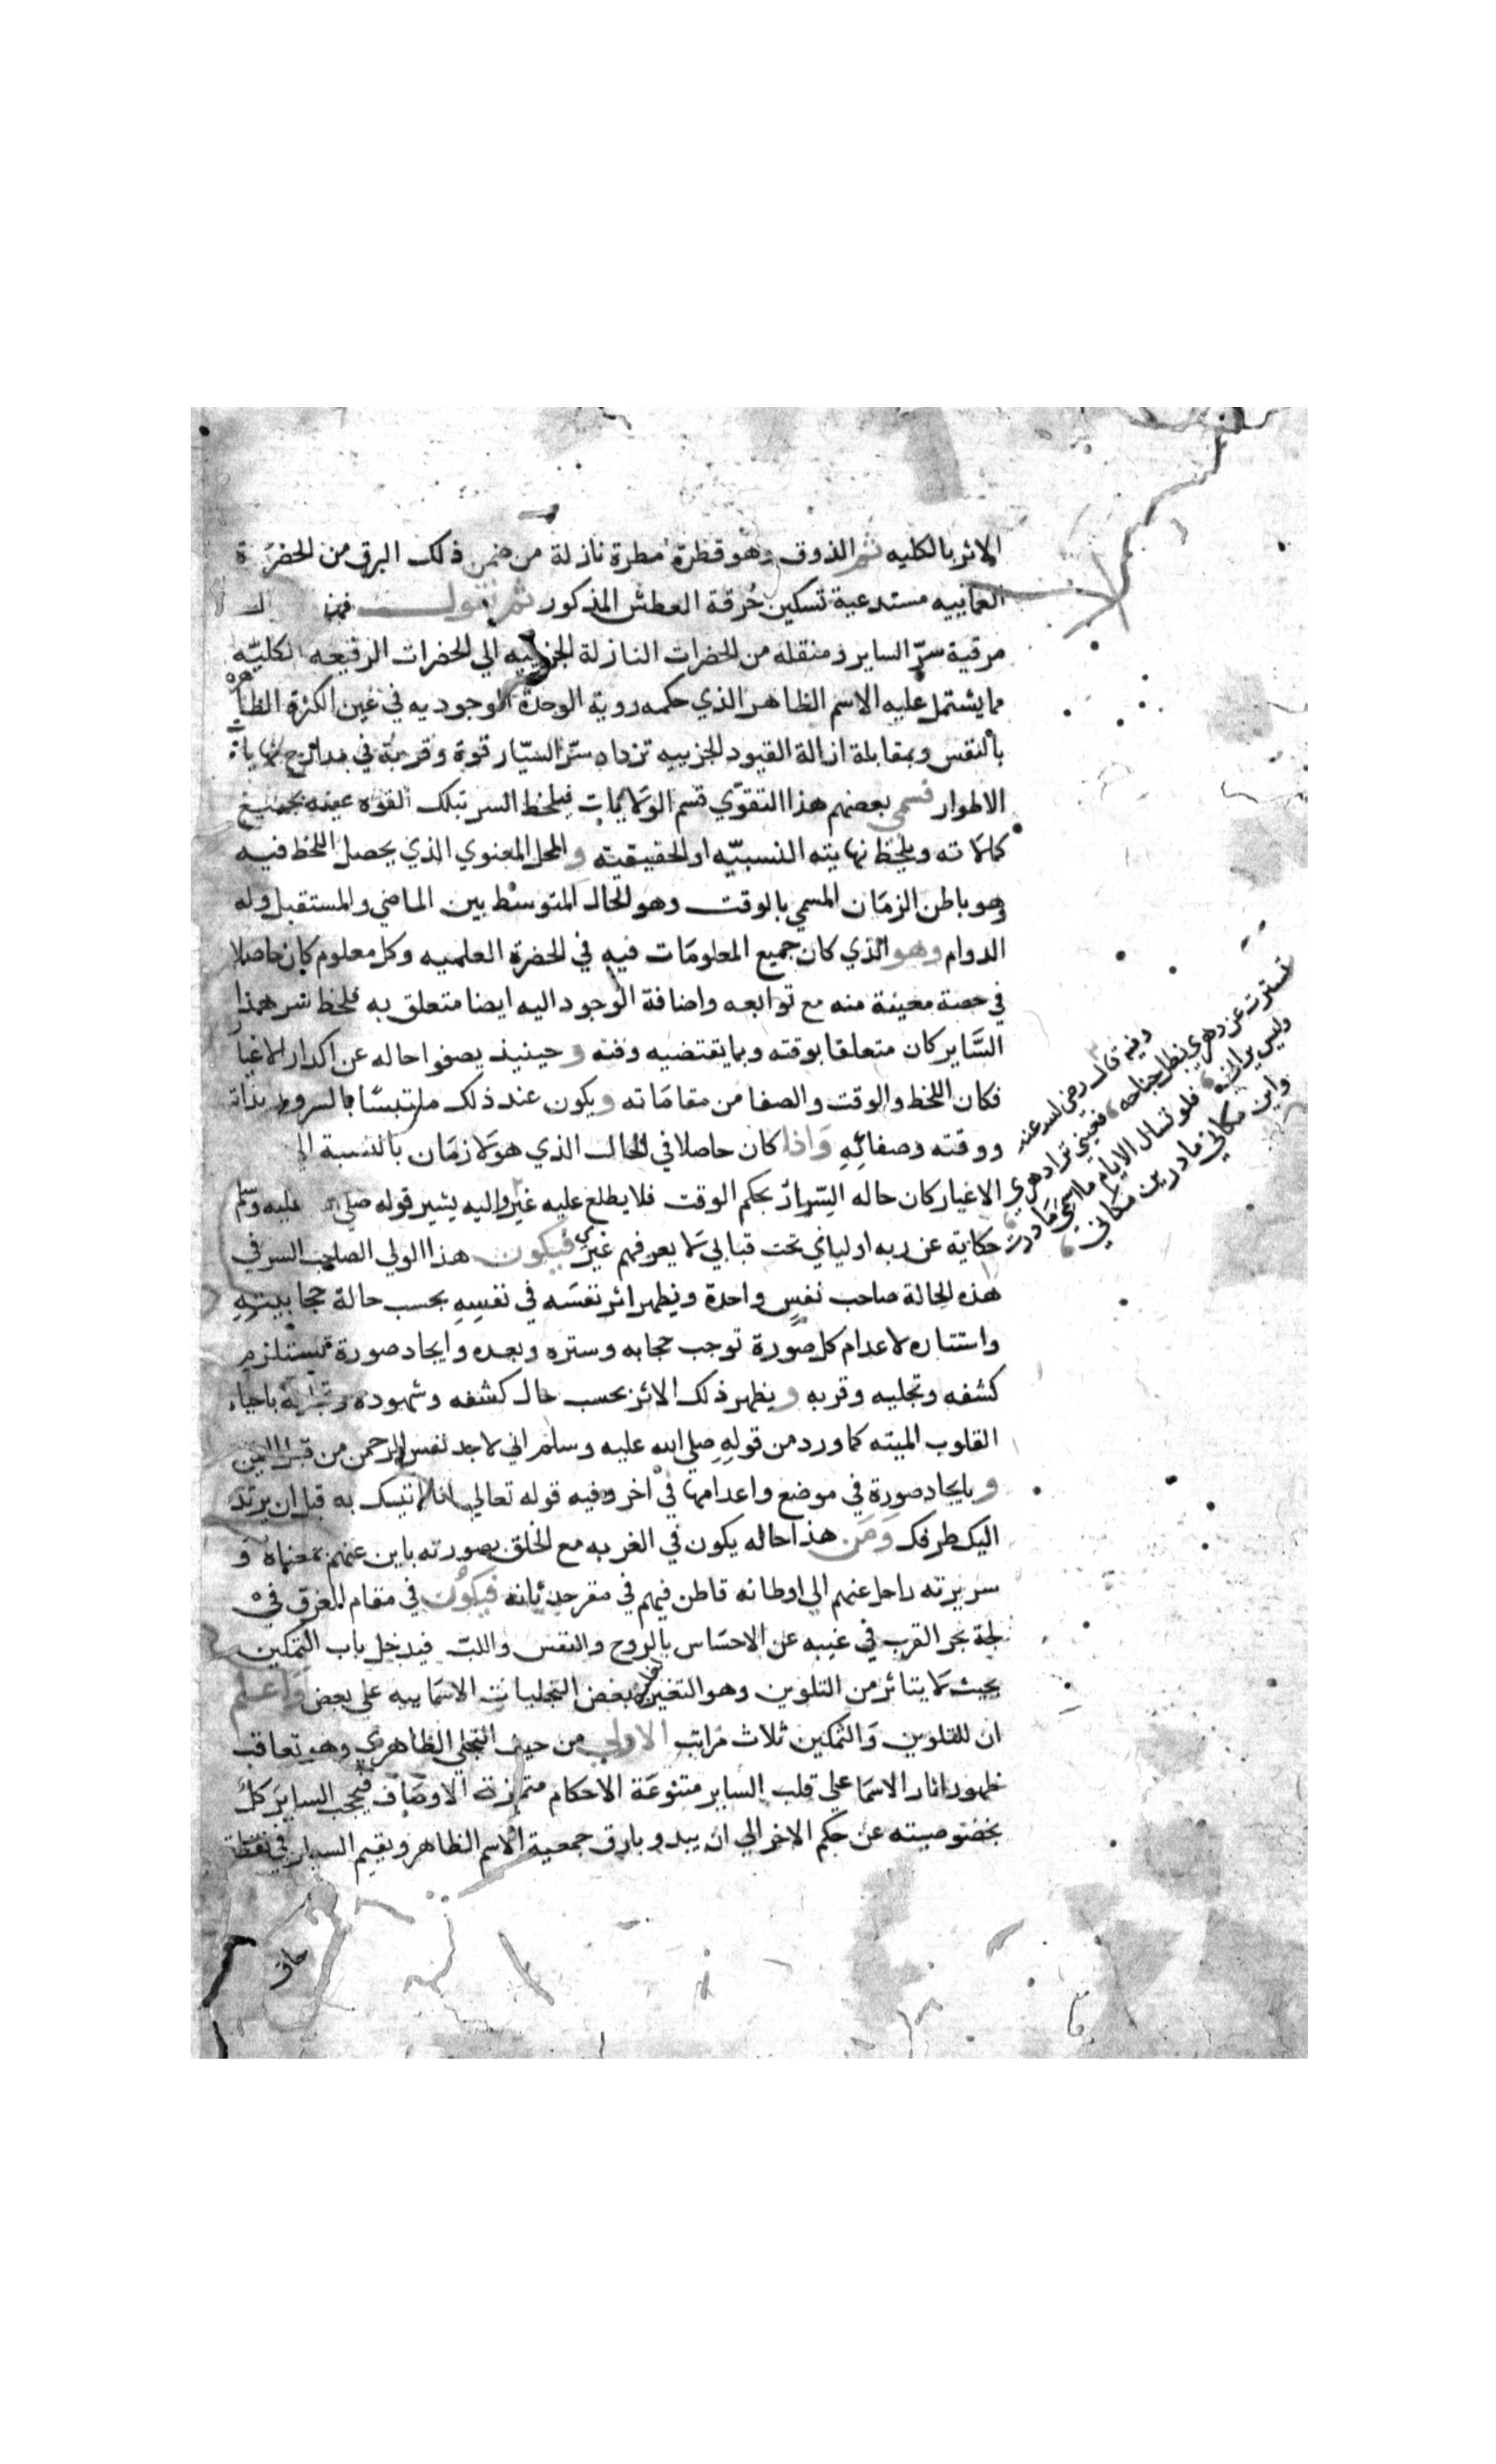 الاثر بالكليه ثم الذوق وهو قطرة مطرة نازلة من ضمن ذلك البرق من الحضرة
العمائيه مستدعية تسكين حُرقة العطش المذكور ثم نقول
مرقية سرّ الساير ومنقله من الحضرات النازلة الجزييه الي الحضرات الرفيعه الكليّه
مما يشتمل عليه الاسم الظاهر الذي حكمه روية الوحدة الوجوديه في عين الكثرة الظاهرة
بالنفس وبمقابلة ازالة القيود الجزييه تزداد سرّ السيّار قوة وقربة في مدارج نهايات
الاطوار فسمي بعضهم هذا التقوّي قسم الولايات فيلحظ السر بتلك القوه عينه بجميع
كمالاته ويلحظ نهايته النسبيّه او الحقيقيه والمحل المعنوي الذي يحصل اللحظ فيه
وهو باطن الزمان المسمي بالوقت وهو الحال المتوسط بين الماضي والمستقبل وله
الدوام وهو الذي كان جميع المعلومات فيه في الحضرة العلميه وكل معلوم كان حاصلا
في حصة معينة منه مع توابعه واضافة الوجود اليه ايضا متعلق به فلحظ سر هذا
السَّاير كان متعلقا بوقته وبما يقتضيه وقته وحينيذ يصفوا حاله عن اكدار الاغيار
فكان اللحظ والوقت والصفا من مقاماته ويكون عند ذلك ملتبسًا بالسرور بذاته
ووقته وصفائه واذا كان حاصلا في الحال الذي هو لا زمان بالنسبة الي
الاغيار كان حاله السّرار بحكم الوقت فلا يطلع عليه غيره واليه يشير قوله صلي الله عليه وسلم
حكاية عن ربه اوليائي تحت قبابي لا يعرفهم غيري فيكون هذا الولي الصاحب السر في
هذه الحالة صاحب نفسٍ واحدة ويظهر اثر نفسه في نفسه بحسب حالة حجابيته
واستتاره لاعدام كل صورة توجب حجابه وستره وبعده وايجاد صورة تستلزم
كشفه وتجليه وقربه ويظهر ذلك الاثر بحسب حال كشفه وشهوده باحياء
القلوب الميته كما ورد من قوله صلي الله عليه وسلم اني لاجد نفس الرحمن من قبل اليمن
وبايجاد صورة في موضع واعدامها في اخر وفيه قوله تعالي انا اتيك به قبل ان يرتد
اليك طرفك ومن هذا حاله يكون في الغربه مع الخلق بصورته باين عنهم بمعناه و
سريرته راحل عنهم الي اوطانه قاطن فيهم في مقر حدثانه فيكون في مقام الغرق في
لجة بحر القرب في غيبه عن الاحساس بالروح والنفس واللب فيدخل باب التمكين
بحيث لا يتاثر من التلوين وهو التغير بعض التجليات الاسماييه علي بعض واعلم
ان للتلوين والتمكين ثلاث مراتب الاولي من حيث التجلي الظاهري وهو تعاقب
ظهور اثار الاسما علي قلب الساير متنوعة الاحكام متمايزة الاوصاف فيحجب الساير كل
بخصوصيته عن حكم الاخر الي ان يبدو بارق جمعية الاسم الظاهر ويقيم السيار في نقطة
حاق
وفيه قال رضي الله عنه
تسترت عن دهري بظل جناحه فعيني ترا دهري
وليس يراني فلو تسال الايام ما اسمي ما درت
واين مكاني ما درين مكاني